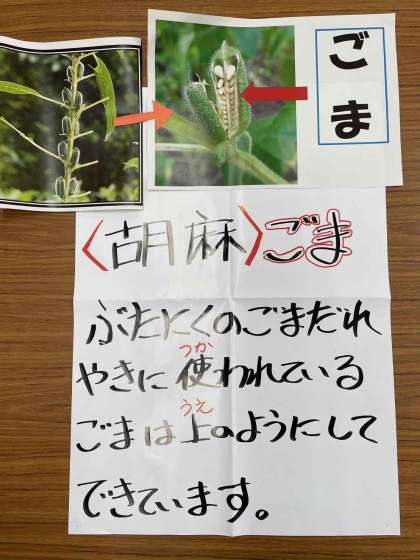 ごま
〈胡麻〉ごま
ぶたにくのごまだれ
やきに使われている
つか
ごまは上のようにして
うえ
できています。